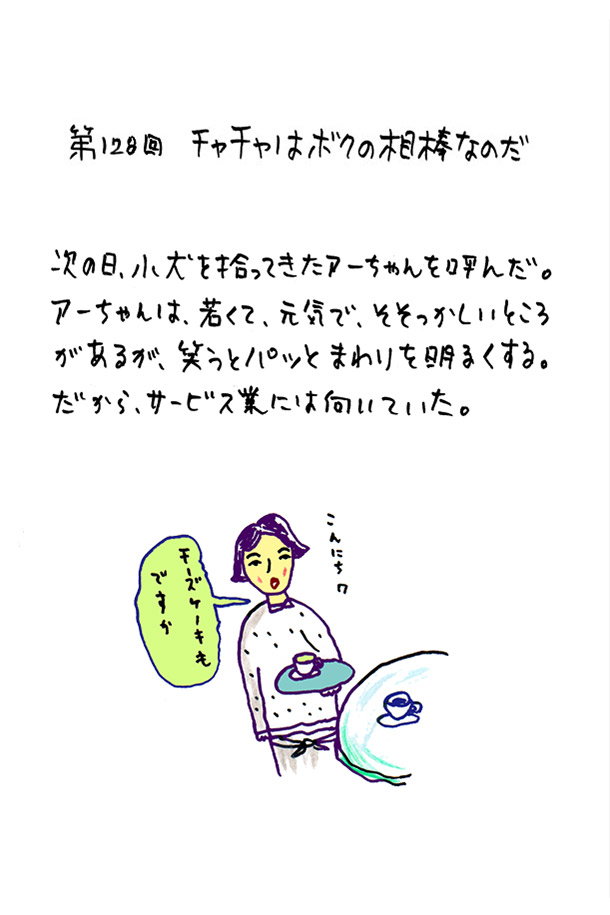 第128回 チャチャはボクの相棒なのだ
次の日、小犬を拾ってきたアーちゃんを呼んだ。
アーちゃんは、若くて、元気で、そそっかしいところ
があるが、笑うとパッとまわりを明るくする。
だから、サービス業には向いていた。
こんにちワ
チーズケーキも
ですか